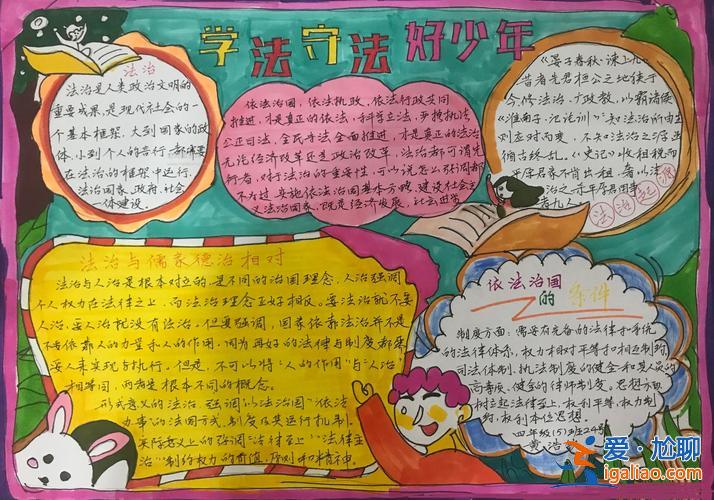 学法守法好少年
法治
法治是人类政治文明的
重要成果,是现代社会的一
个基本框架,大到国家的政
体,小到个人的言行,都需要
在法治的框架中运行,
法治国家,政府,社会
一体建设。
依法治国,依法执政,依法行政共同
推进,才是真正的依法,科学立法,严格执法
公正司法,全民守法全面推进,才是真正的法治
无论经济改革还是政治改革,法治都可谓先
行者,对于法治的重要性,可以说怎么强调都
不为过,实施依法治国基本方略,建设社会主
义法治国家,既是经济发展,社会进步
《晏子春秋·谏上九》
昔者先君桓公之地狭于
今修法治,广政教,以霸诸侯
《淮南子·氾论训》知法治所由生
则应时而变,不知法治之源
循古终乱。《史记》收租税而
法治起源
法治与儒家德治相对
法治与人治是根本对立的,是不同的治国理念,人治强调
个人权力在法律之上,而法治理念正好相反。要法治就不要
人治,要人治就没有法治,但要强调,国家依靠法治并不是
不去依靠人的力量和人的作用,因为再好的法律与制度都需
要人来实现与执行。但是,不可以将"人的作用"与"人治"
相等同,两者是根本不同的概念。
形式意义的法治,强调"以法治国""依法
办事"的治国方式、制度及其运行机制。
实际意义上的强调"法律至上""法律主
治""制约权力"的价值、原则和精神。
依法治国
的条件
制度方面:需要有完备的法律和系统
的法律体系,权力相对平等和相互制约
司法体制、执法制度的健全和其人员的
高素质、健全的律师制度。思想方面
树立起法律至上,权利平等,权力制
约,权利本位思想。
四年级(5)班24号
黄浩
爱·尬聊
igaliao.com